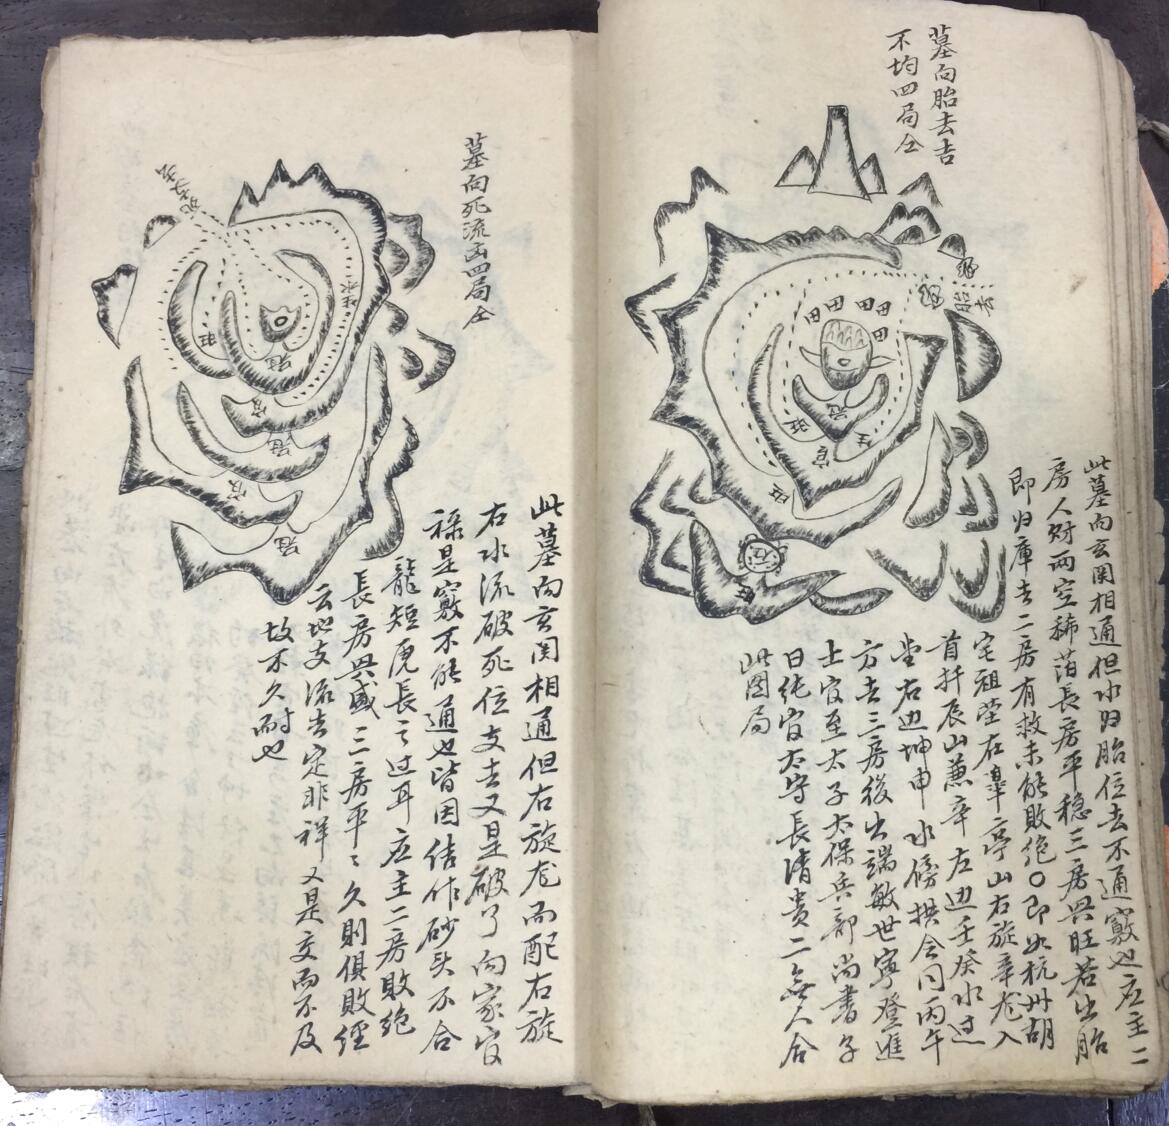 墓向胎去吉
不均四局仝
絕
胎去
田田田田田
冠
旺
生
官
旺
旺
此墓向玄関相通但水归胎位去不通竅也应主二
房人财兩空稀萡長房平稳三房兴旺若出胎
即归庫去二房有救未能敗绝〇即如杭州胡
宅祖塋在皋亭山右旋辛龙入
首扦辰山兼辛左边壬癸水过
堂右边坤申水傍拱会同丙午
方去三房後出端敏世寧登進
士官至太子太保兵部尚書子
日純官太守長清贵二無人合
此图局
墓向死流凶四局仝
生水
旺
冠
官
冠
官
冠
此墓向玄関相通但右旋龙而配右旋
右水流破死位支去又是破了向家官
禄是竅不能通也皆因结作砂头不合
龍短虎長之过耳应主二房敗绝
長房興盛三房平〻久則俱敗經
云地支流去定非祥又是交而不及
故不久耐也